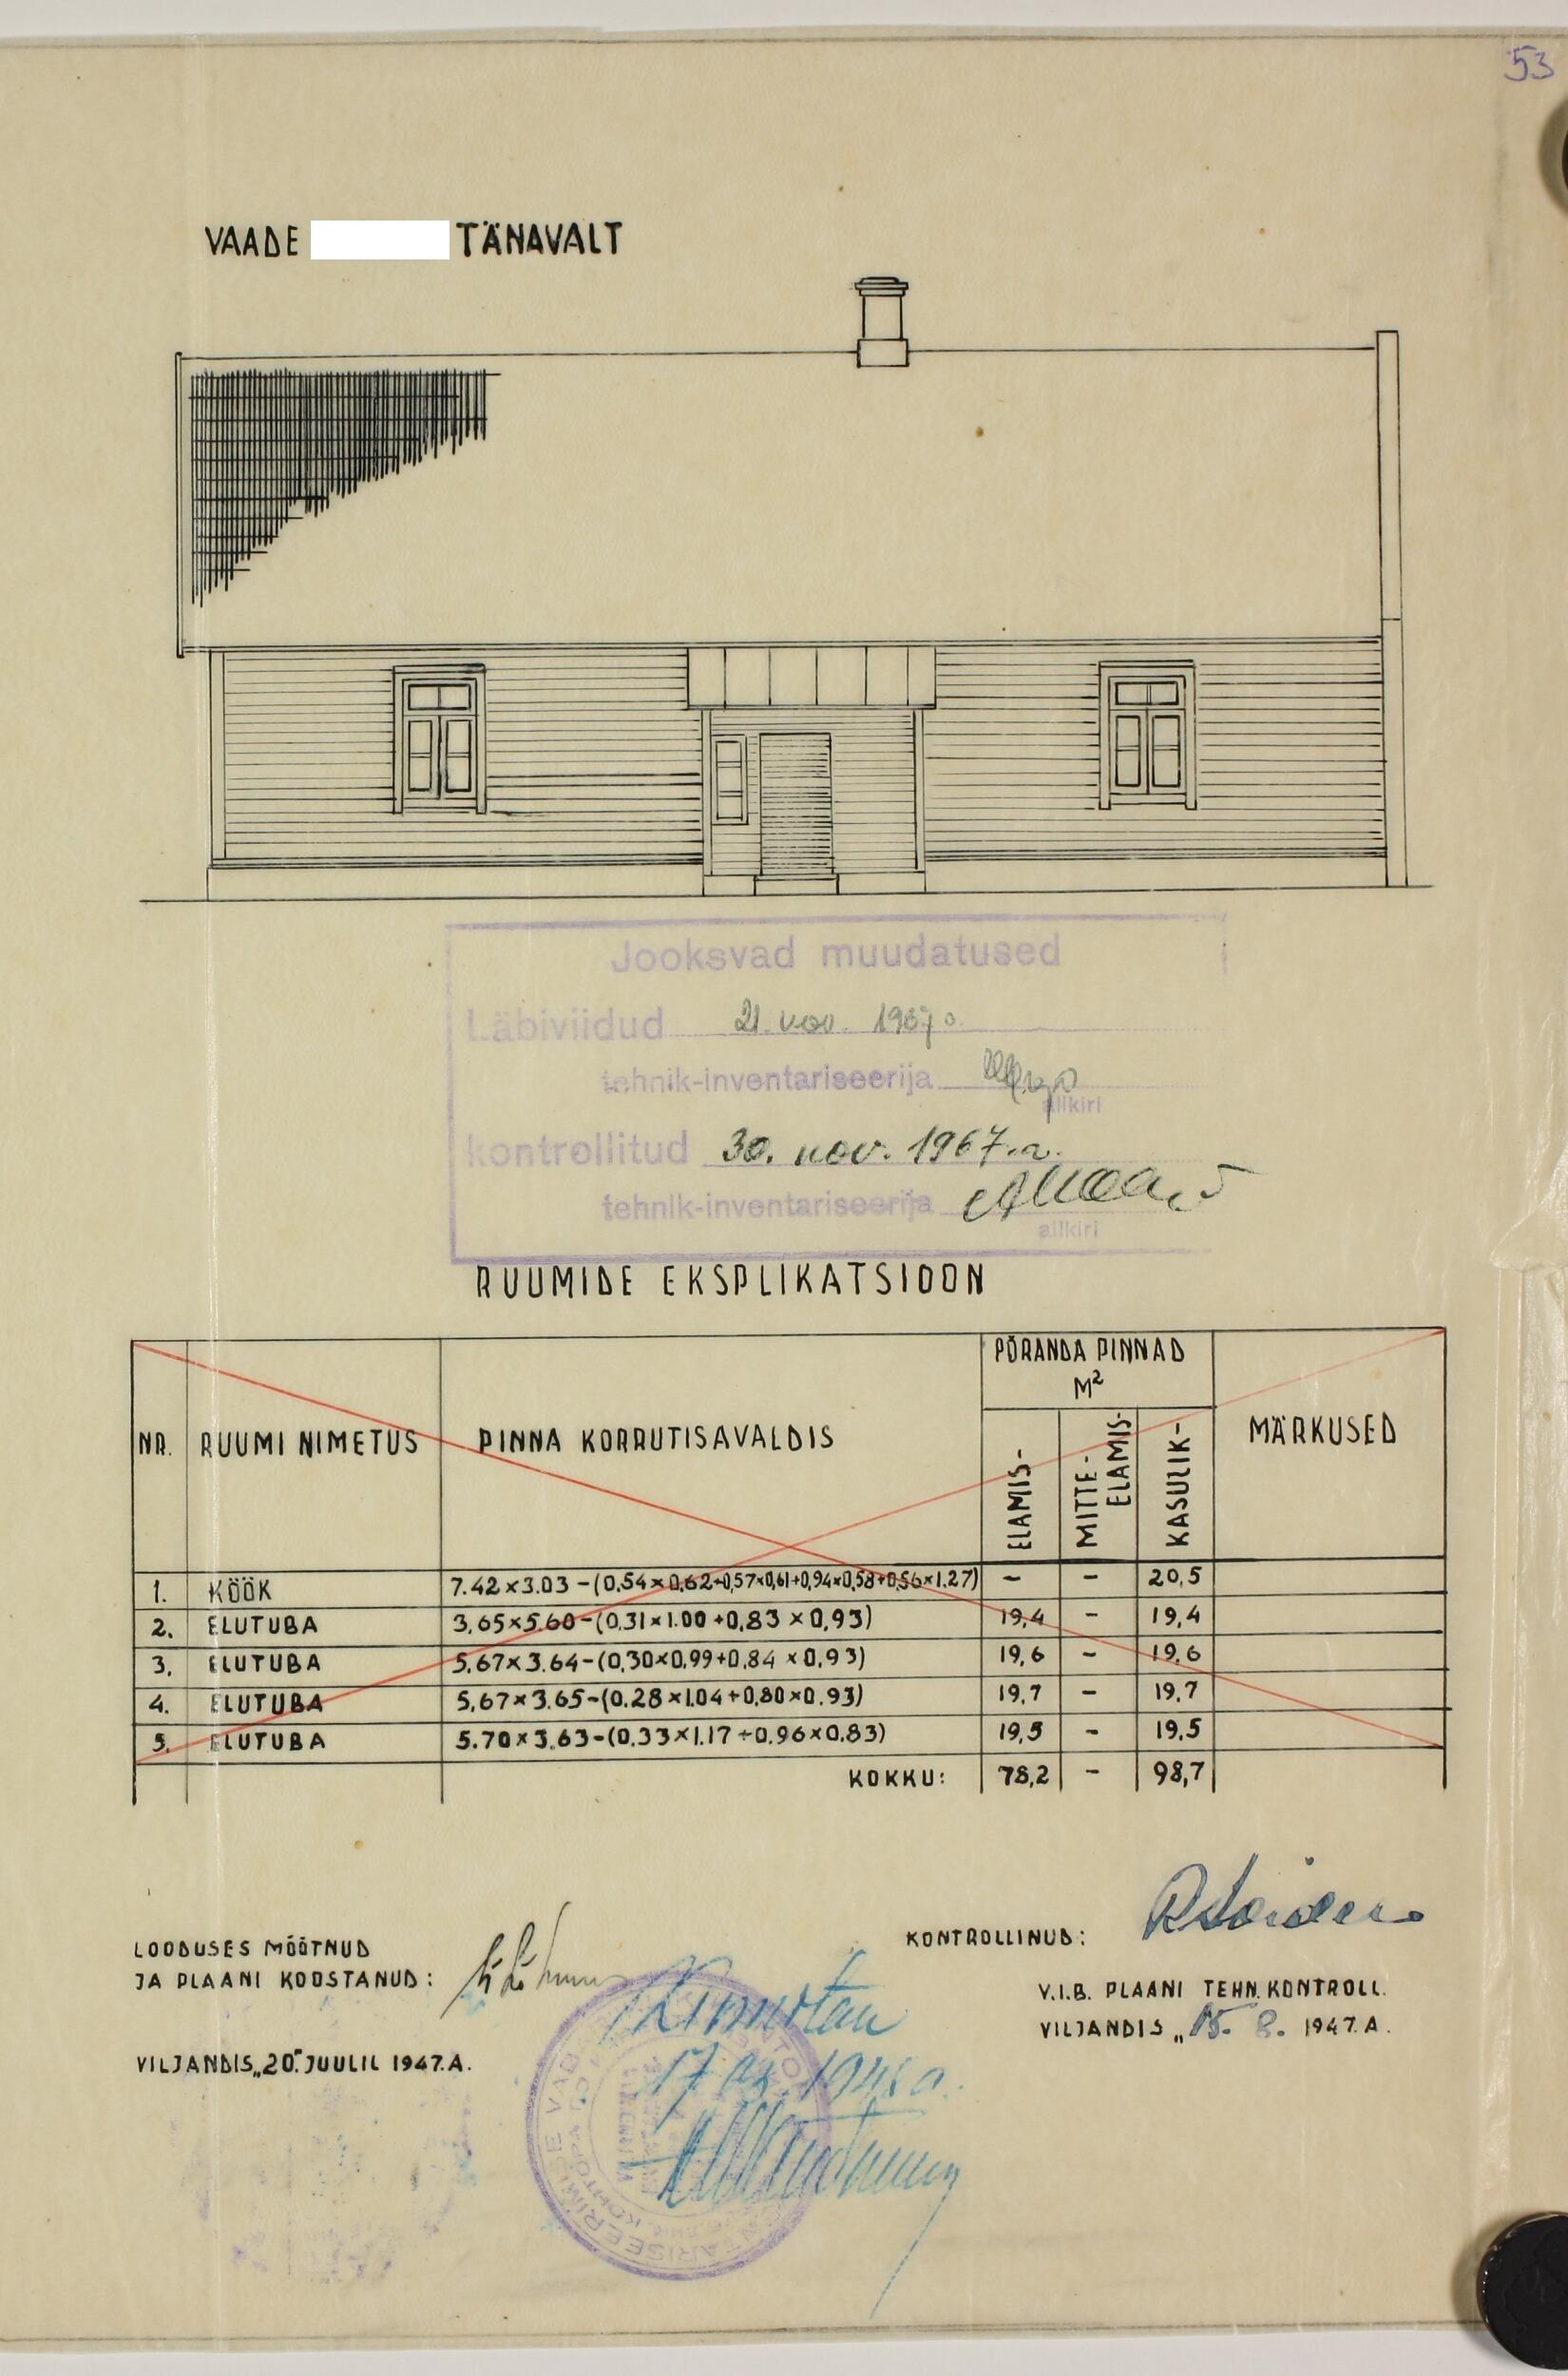 53
VAADE TÄNAVALT
Jooksvad muudatused
Läbiviidud 21. nov. 1967 a.
tehnik-inventariseerija
allkiri
kontrollitud 30. nov. 1967. a.
tehnik-inventariseerija
allkiri
RUUMIDE EKSPLIKATSIOON
NR. RUUMI NIMETUS PINNA KORRUTISAVALDIS PÕRANDA PINNAD M² ELAMIS- MITTE-ELAMIS- KASULIK- MÄRKUSED
1. KÖÖK 7.42×3.03-(0,54×0,62+0,57×0,61+0,94×0,58+0,56×1.27) - - 20,5
2. ELUTUBA 3,65×5.60-(0.31×1.00+0,83×0,93) 19,4 - 19,4
3. ELUTUBA 5,67×3.64-(0,30×0,99+0,84×0,93) 19,6 - 19,6
4. ELUTUBA 5,67×3.65-(0.28×1.04+0,80×0.93) 19,7 - 19,7
5. ELUTUBA 5.70×3.63-(0.33×1.17+0.96×0.83) 19,5 - 19,5
KOKKU: 78,2 - 98,7
LOODUSES MÕÕTNUD
JA PLAANI KOOSTANUD:
VILJANDIS „20." JUULIL 1947.A.
KONTROLLINUD:
V.I.B. PLAANI TEHN. KONTROLL.
VILJANDIS „15. 8. 1947.A.